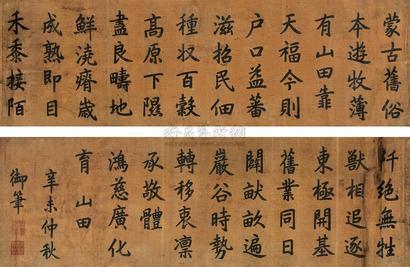 蒙古舊俗
本遊牧薄
有山田靠
天福今則
户口益蕃
滋招民佃
種収百穀
髙原下隰
盡良疇地
鮮澆瘠歳
成熟即目
禾黍接陌
阡絶無牲
獸相追逐
東極開基
舊業同日
闢畎畝遍
巖谷時勢
轉移衷凜
承敬體
鴻慈廣化
育 山田
辛未仲秋
御筆